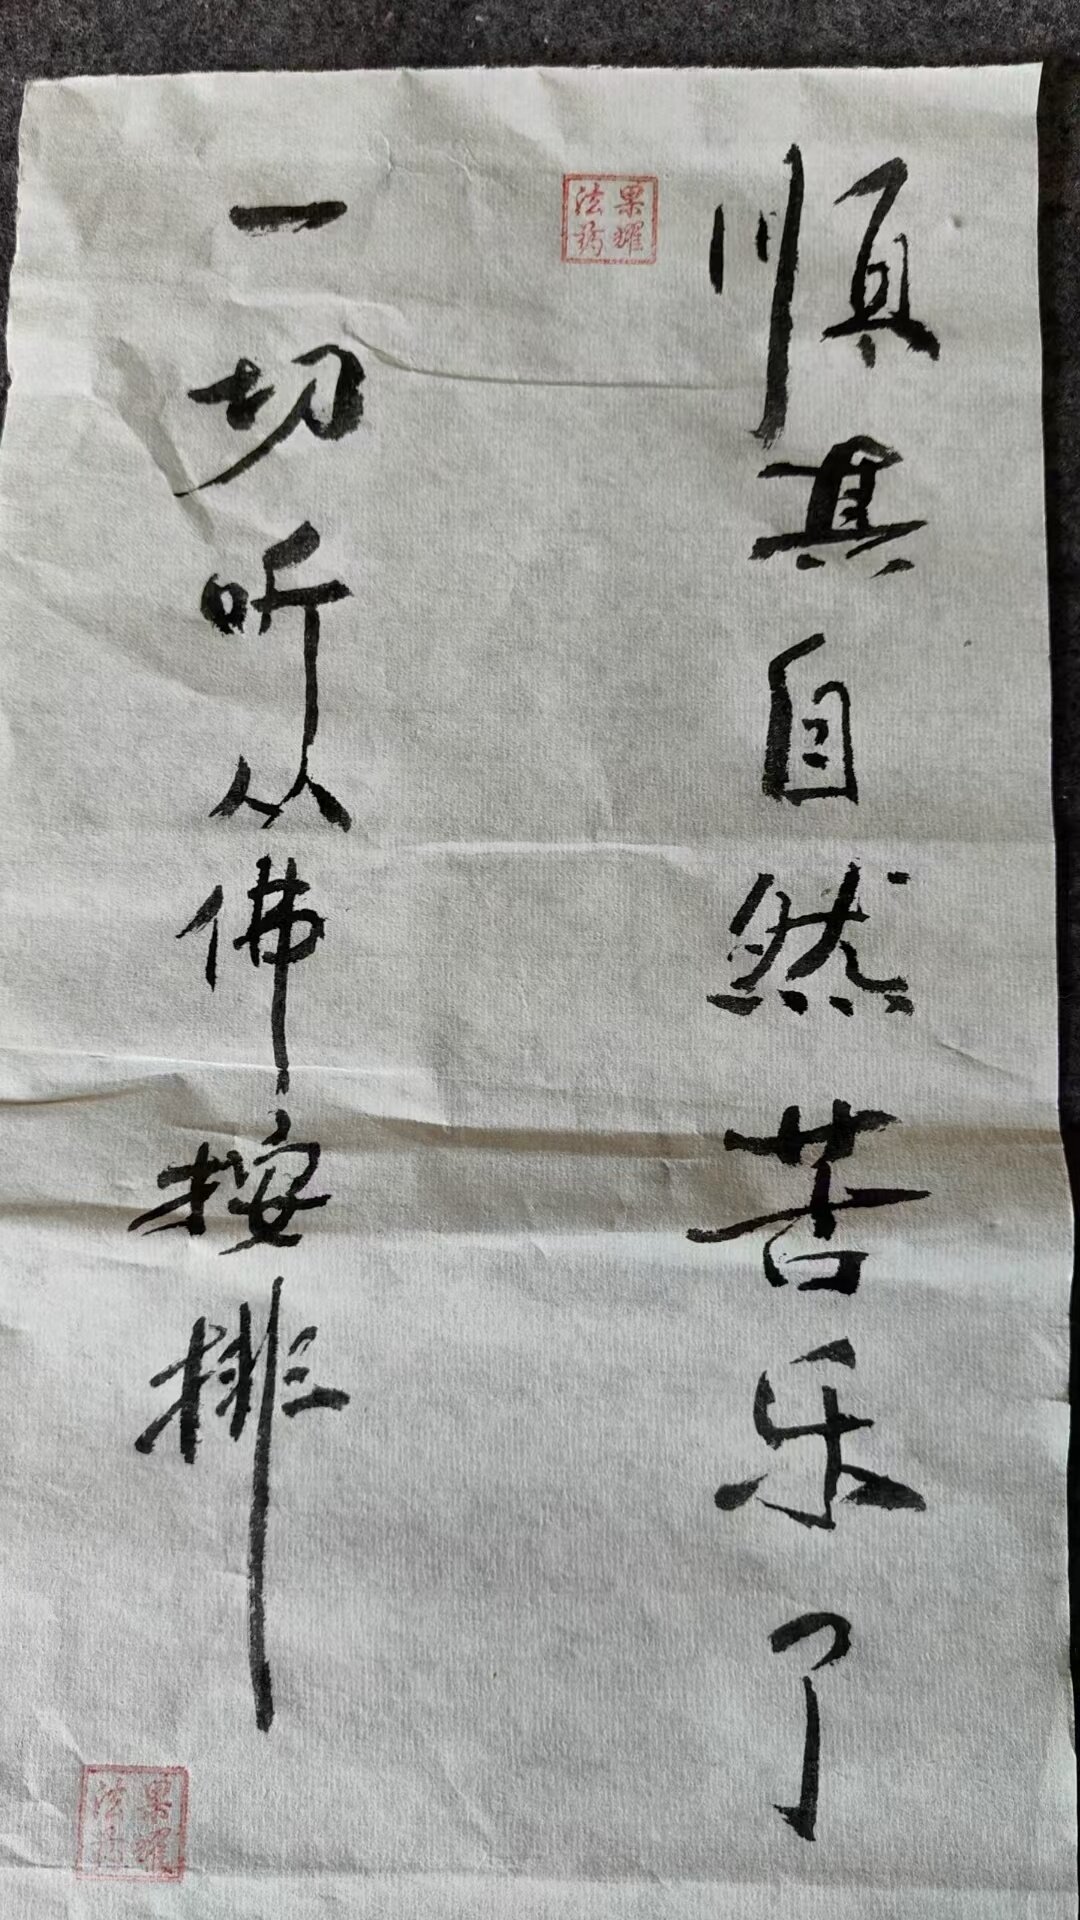 順其自然苦乐了
一切听从佛按排
果耀
法
果耀
法